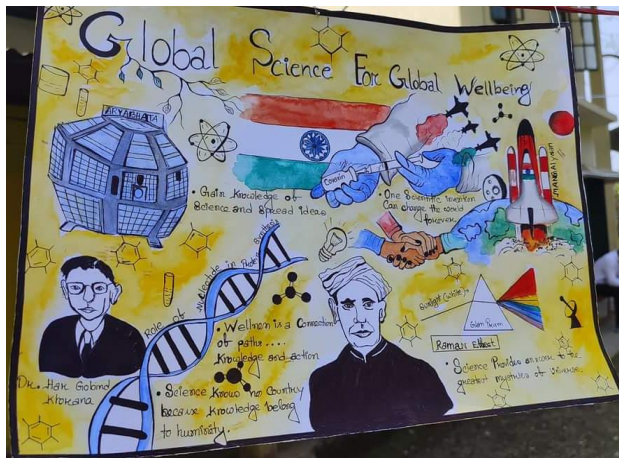 Global Science For Global Wellbeing
ARYABHATA
Covaxin
MANGALyaan
• Gain knowledge of
Science and Spread Ideas
• One Scientific invention
Can change the world
forever.
Role of Nucleotide in
Dr. Har Gobind
Khorana
• Wellness is a Connection
of paths....
knowledge and action
• Science know no Country
because knowledge belong
to huminity.
Sunlight (white)
Glass Prism
Raman Effect
• Science Provides answer to the
greatest mystries of Universe.